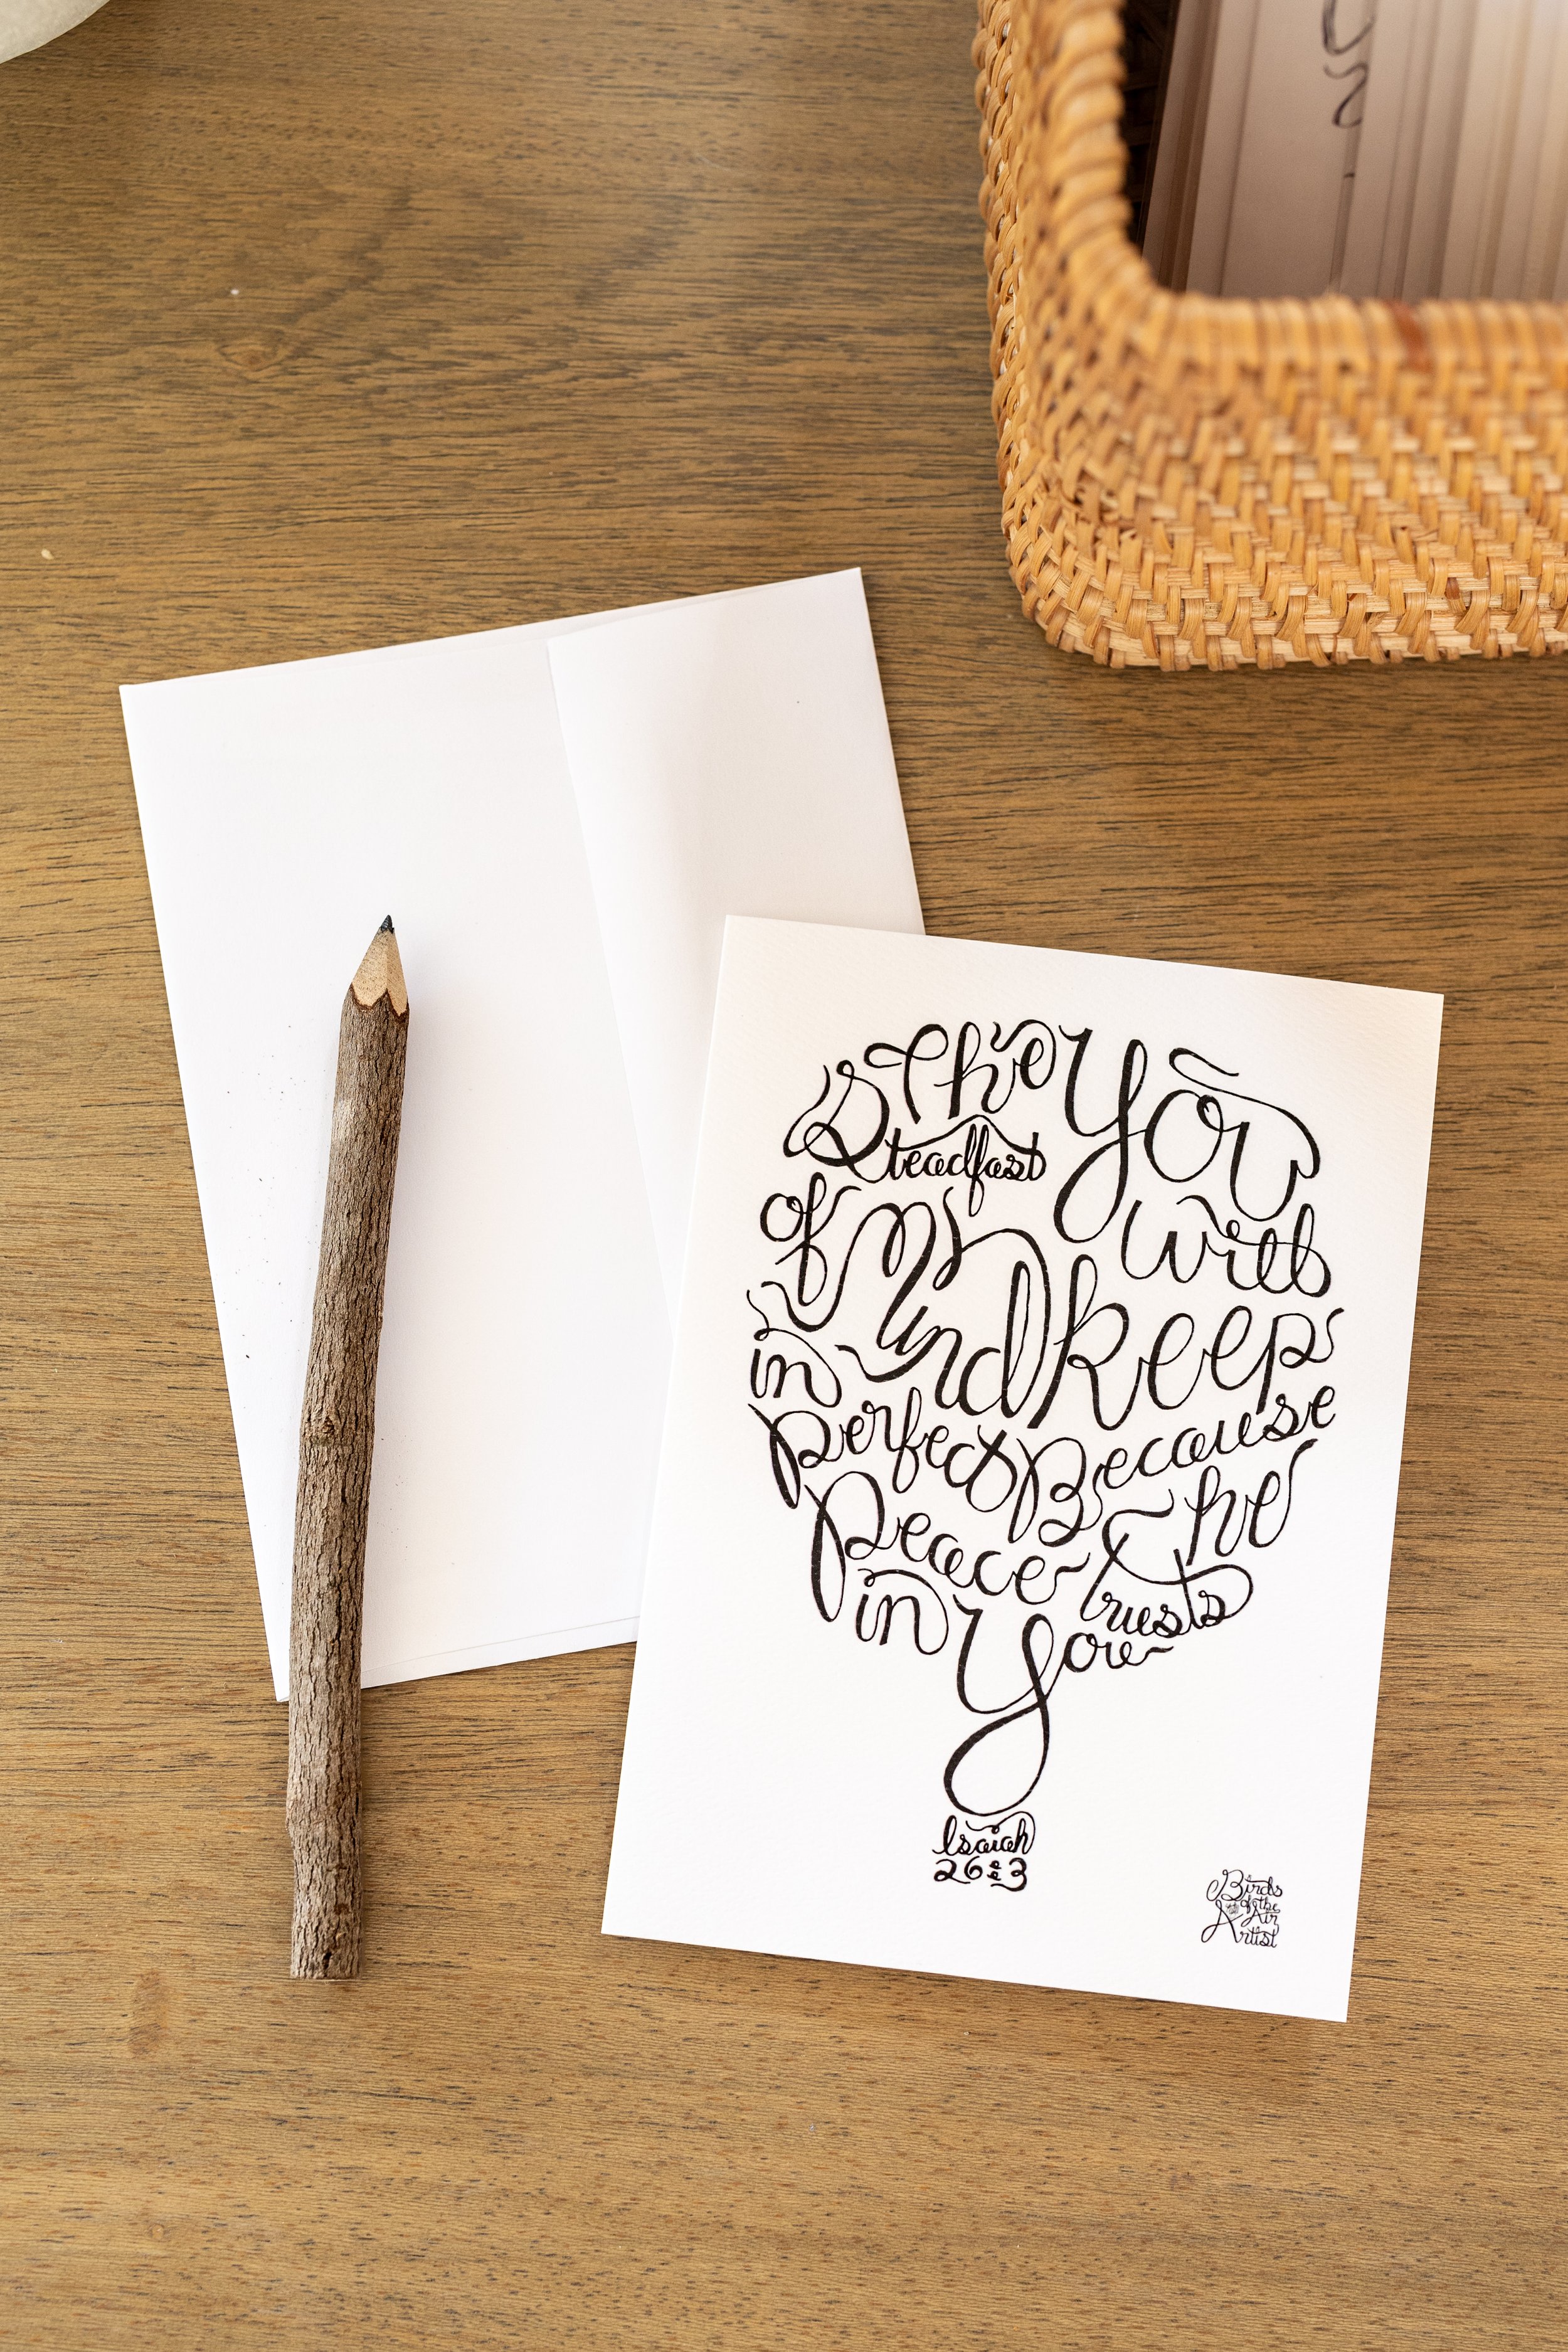 The
Steadfast
of Mind
You
will
keep
in
perfect
Peace
Because
he
trusts
in You
Isaiah
26:3
Birds
of the
Air
Artist